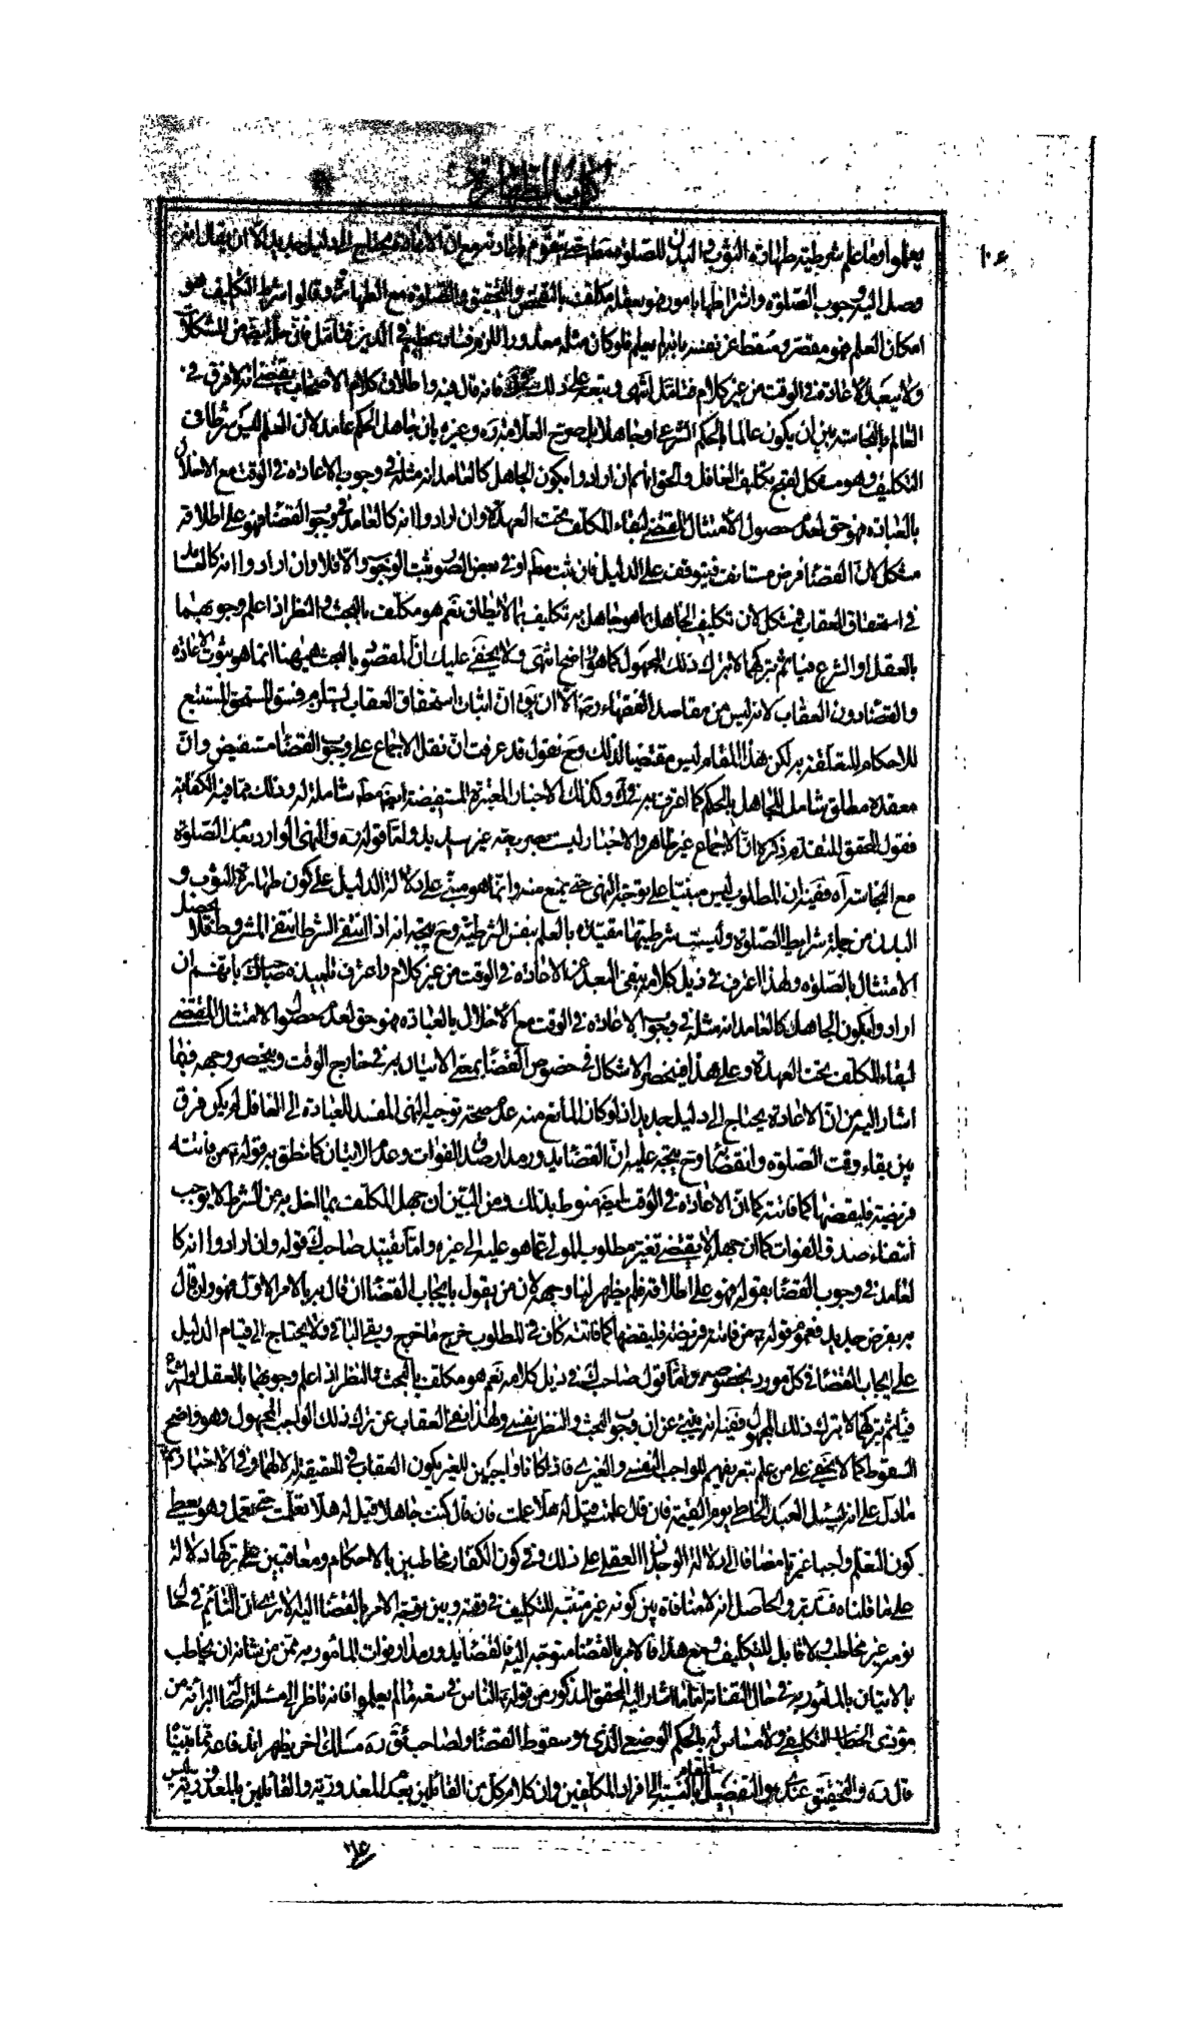 كتاب الطهارة
١٠٤
يعلموا وما علم شرطية طهارة الثوب والبدن للصلوة مطلقا حتى تقوم باعادته مع ان الاعادة يحتاج الى دليل جديد الا ان يقال انه
وصل اليه وجوب الصلوة واشتراطها بامور فهو بعقله مكلف بالتفحص والتحقيق والصلوة مع الطهارة وقالوا شرط التكليف هو
امكان العلم فهو مقصر ومسقط عن نفسه بانه لم يعلم فلو كان مثله معذورا للزم فساد عظيم في الدين فتامل فان هذه المسئلة من المشكلات
ولا تبعد الاعادة في الوقت من غير كلام فتامل انتهى وتبعه على ذلك فانه قال فيه واطلاق كلام الاصحاب يقتضي انه لا فرق في
العالم بالنجاسة بين ان يكون عالما بالحكم الشرعي او جاهلا بل صرح العلامة ره وغيره بان جاهل الحكم عامد لان العلم ليس شرطا في
التكليف وهو مشكل لقبح تكليف الغافل والحق انهم ان ارادوا بكون الجاهل كالعامد انه مثله في وجوب الاعادة في الوقت مع الاخلال
بالعبادة فهو حق لعدم حصول الامتثال المقتضي لبقاء المكلف تحت العهدة وان ارادوا انه كالعامد في وجوب القضاء فهو على اطلاقه
مشكل لان القضاء فرض مستانف فيتوقف على الدليل فان ثبت مطلقا او في بعض الصور ثبت الوجوب والا فلا وان ارادوا انه كالعامد
في استحقاق العقاب فمشكل لان تكليف الجاهل بما هو جاهل به تكليف بما لا يطاق نعم هو مكلف بالبحث والنظر اذا علم وجوبهما
بالعقل او الشرع فياثم بتركهما لا بترك ذلك المجهول كما هو واضح انتهى ولا يخفى عليك ان المقصود بالبحث هيهنا انما هو ثبوت الاعادة
والقضاء دون العقاب لانه ليس من مقاصد الفقهاء رض الا ان يق ان اثبات استحقاق العقاب يستلزم فسق المستحق المستتبع
للاحكام المتعلقة به لكن هذا المقام ليس مقتضيا لذلك وح نقول قد عرفت ان نقل الاجماع على وجوب القضاء مستفيض وان
معقده مطلق شامل للجاهل بالحكم كما اعترف به في ك وكذلك الاخبار المعتبرة المستفيضة ايضا مطلقة شاملة له وذلك مما فيه الكفاية
فقول المحقق المتقدم ذكره ان الاجماع غير ظاهر والاخبار ليست صريحة غير سديد واما قوله ره والنهي الوارد بعد الصلوة
مع النجاسة آه ففيه ان المطلوب ليس مبنيا على توجه النهي حتى يمنع منه وانما هو مبني على دلالة الدليل على كون طهارة الثوب و
البدن من جملة شرايط الصلوة وليست شرطيتها مقيدة بالعلم بنفس الشرطية وح يتجه انه اذا انتفى الشرط انتفى المشروط فلا يحصل
الامتثال بالصلوة ولهذا اعترف في ذيل كلامه بنفي البعد عن الاعادة في الوقت من غير كلام واعترف تلميذه صاحب ك بانهم ان
ارادوا بكون الجاهل كالعامد انه مثله في وجوب الاعادة في الوقت مع الاخلال بالعبادة فهو حق لعدم حصول الامتثال المقتضي
لبقاء المكلف تحت العهدة وعلى هذا فينحصر الاشكال في خصوص القضاء بمعنى الاتيان به في خارج الوقت وينحصر وجهه فيما
اشار اليه من ان الاعادة يحتاج الى دليل جديد اذ لو كان المانع منه عدم صحة توجيه النهي المفسد للعبادة الى الغافل لم يكن فرق
بين بقاء وقت الصلوة وانقضائه وح يتجه عليه ان القضاء يدور مدار صدق الفوات وعدم الاتيان كما نطق به قوله ع من فاتته
فريضة فليقضها كما فاتته كما ان الاعادة في الوقت ايضا منوط بذلك ومن البين ان جهل المكلف بما اخل به من الشرط لا يوجب
انتفاء صدق الفوات كما ان جهله لا يقتضي تغير مطلوب المولى عما هو عليه الى غيره واما تقييد صاحب ك قوله وان ارادوا انه كا
لعامد في وجوب القضاء بقوله فهو على اطلاقه فلم يظهر لنا وجهه لان من يقول بايجاب القضاء ان قال به بالامر الاول فهو وان قال
به بفرض جديد فعموم قوله ع من فاتته فريضة فليقضها كما فاتته كان في المطلوب خرج ما خرج وبقي الباقي ولا يحتاج الى قيام الدليل
على ايجاب القضاء في كل مورد بخصوصه واما قول صاحب ك في ذيل كلامه نعم هو مكلف بالبحث والنظر اذا علم وجوبهما بالعقل والشرع
فياثم بتركهما لا بترك ذلك المجهول ففيه انه ينبئ عن ان وجوب البحث والنظر نفسي ولهذا نفى العقاب عن ترك ذلك الواجب المجهول وهو واضح
السقوط كما لا يخفى على من علم بتعريفهم للواجب النفسي والغيري فاذا كانا واجبين للغير يكون العقاب في الحقيقة له لا لهما وفي الاخبار ايضا
ما دل على انه يسئل العبد الخاطي يوم القيمة فان قال علمت قيل له هلا عملت فان قال كنت جاهلا قيل له هلا تعلمت حتى تعمل وهو يعطي
كون التعلم واجبا غيريا مضافا الى دلالة الوجدان العقلي على ذلك وفي كون الكفار مخاطبين بالاحكام ومعاقبين على تركها دلالة
على ما قلناه فتدبر والحاصل انه لا منافاة بين كونه غير متنبه للتكليف في وقته وبين توجه الامر بالقضاء اليه الا ترى ان النائم في حال
نومه غير مخاطب ولا قابل للتكليف ومع هذا فالامر بالقضاء متوجه اليه فالقضاء يدور مدار فوات المامور به ممن من شانه ان يخاطب
بالاتيان بالمامور به في حال التفاته اما ما اشار اليه المحقق المذكور من قوله ع الناس في سعة ما لم يعلموا فانه ناظر الى مسئلة اصالة البرائة من
مؤدى الخطاب التكليفي ولا مساس له بالحكم الوضعي الذي هو سقوط القضاء ولصاحب ئق ره مسلك اخر يظهر اندفاعه مما بينا
قال ره والتحقيق عندي هو التفصيل بالنسبة الى افراد المكلفين وان كلام كل من القائلين بعدم المعذورية والقائلين بالمعذورية ليس